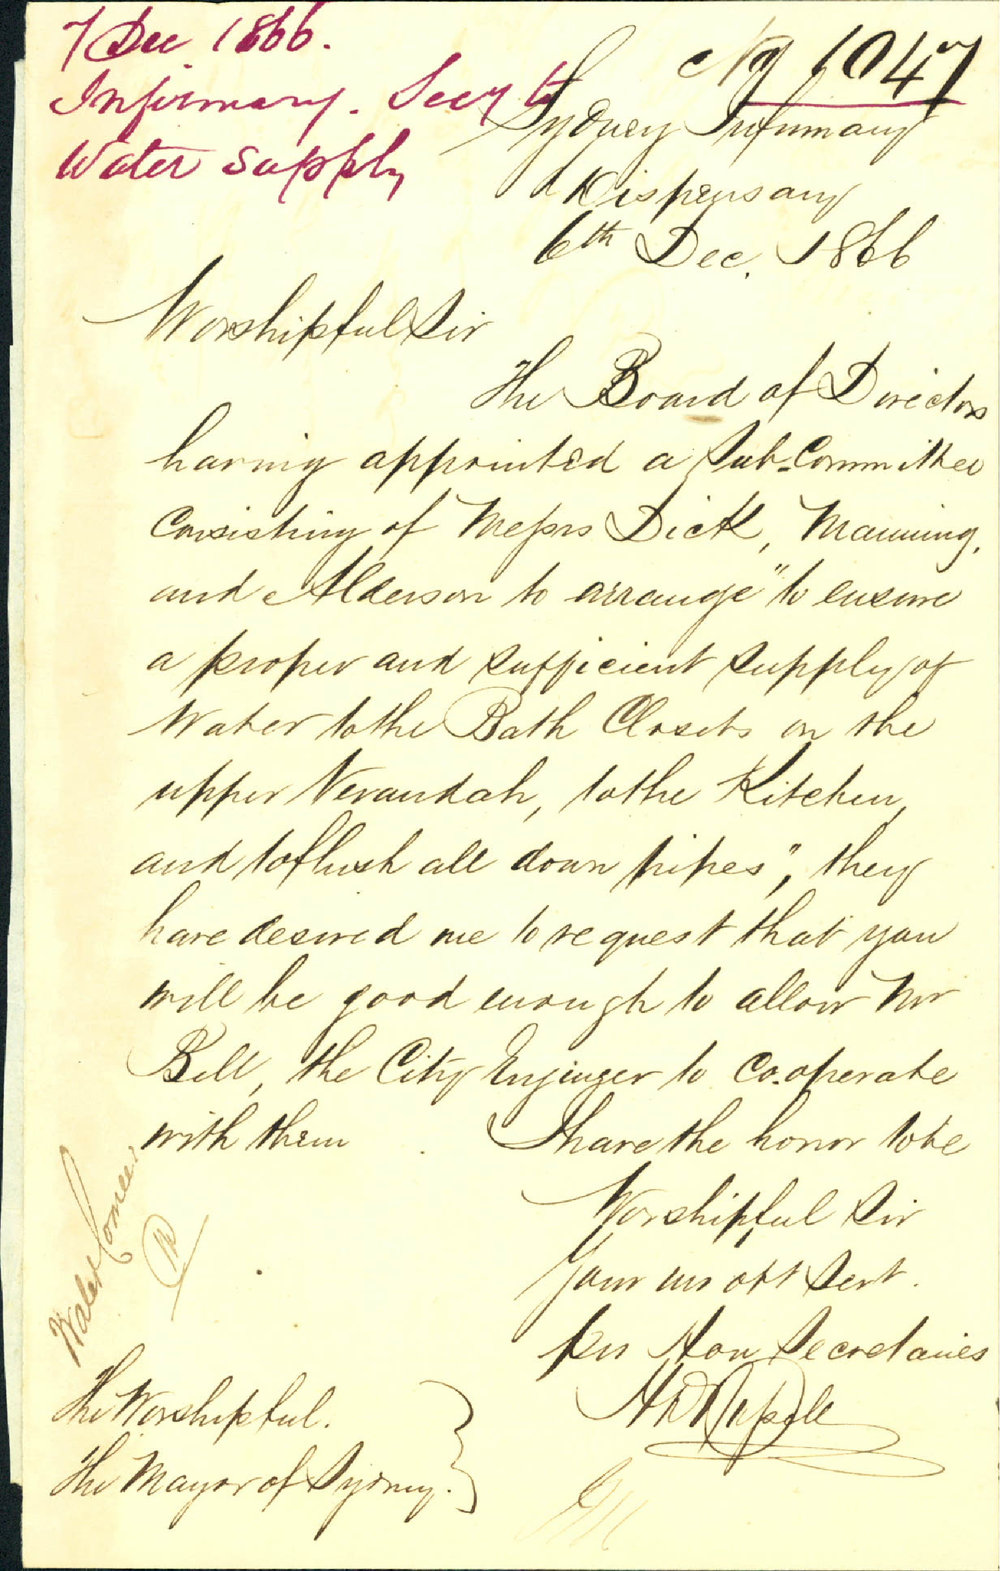 7 Dec 1866.
Infirmary. Secy to
Water Supply
No 1047
Sydney Infirmary
& Dispensary
6th Dec. 1866
Worshipful Sir
The Board of Directors
having appointed a Sub-Committee
Consisting of Messrs Dick, Manning,
and Alderson to arrange "to ensure
a proper and sufficient supply of
Water to the Bath Closets on the
upper Verandah, to the Kitchen,
and to flush all down pipes", they
have desired me to request that you
will be good enough to allow Mr
Bell, the City Engineer to Co-operate
with them. I have the honor to be
Worshipful Sir
Your
obt Servt.
per Hon Secretaries
Water Comee.
The Worshipful.
The Mayor of Sydney.